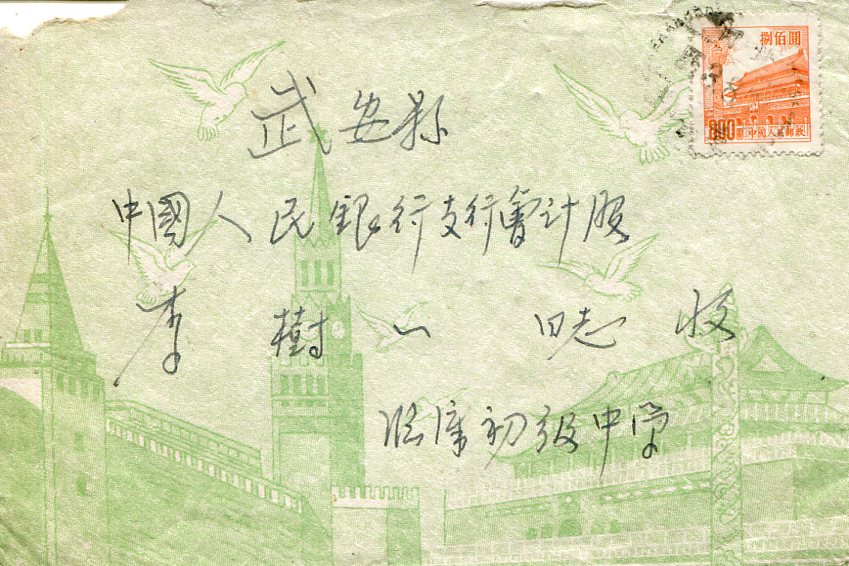 捌佰圓
800 圓 中國人民郵政
武安县
中國人民银行支行會计股
李樹山 同志 收
临 初级中学